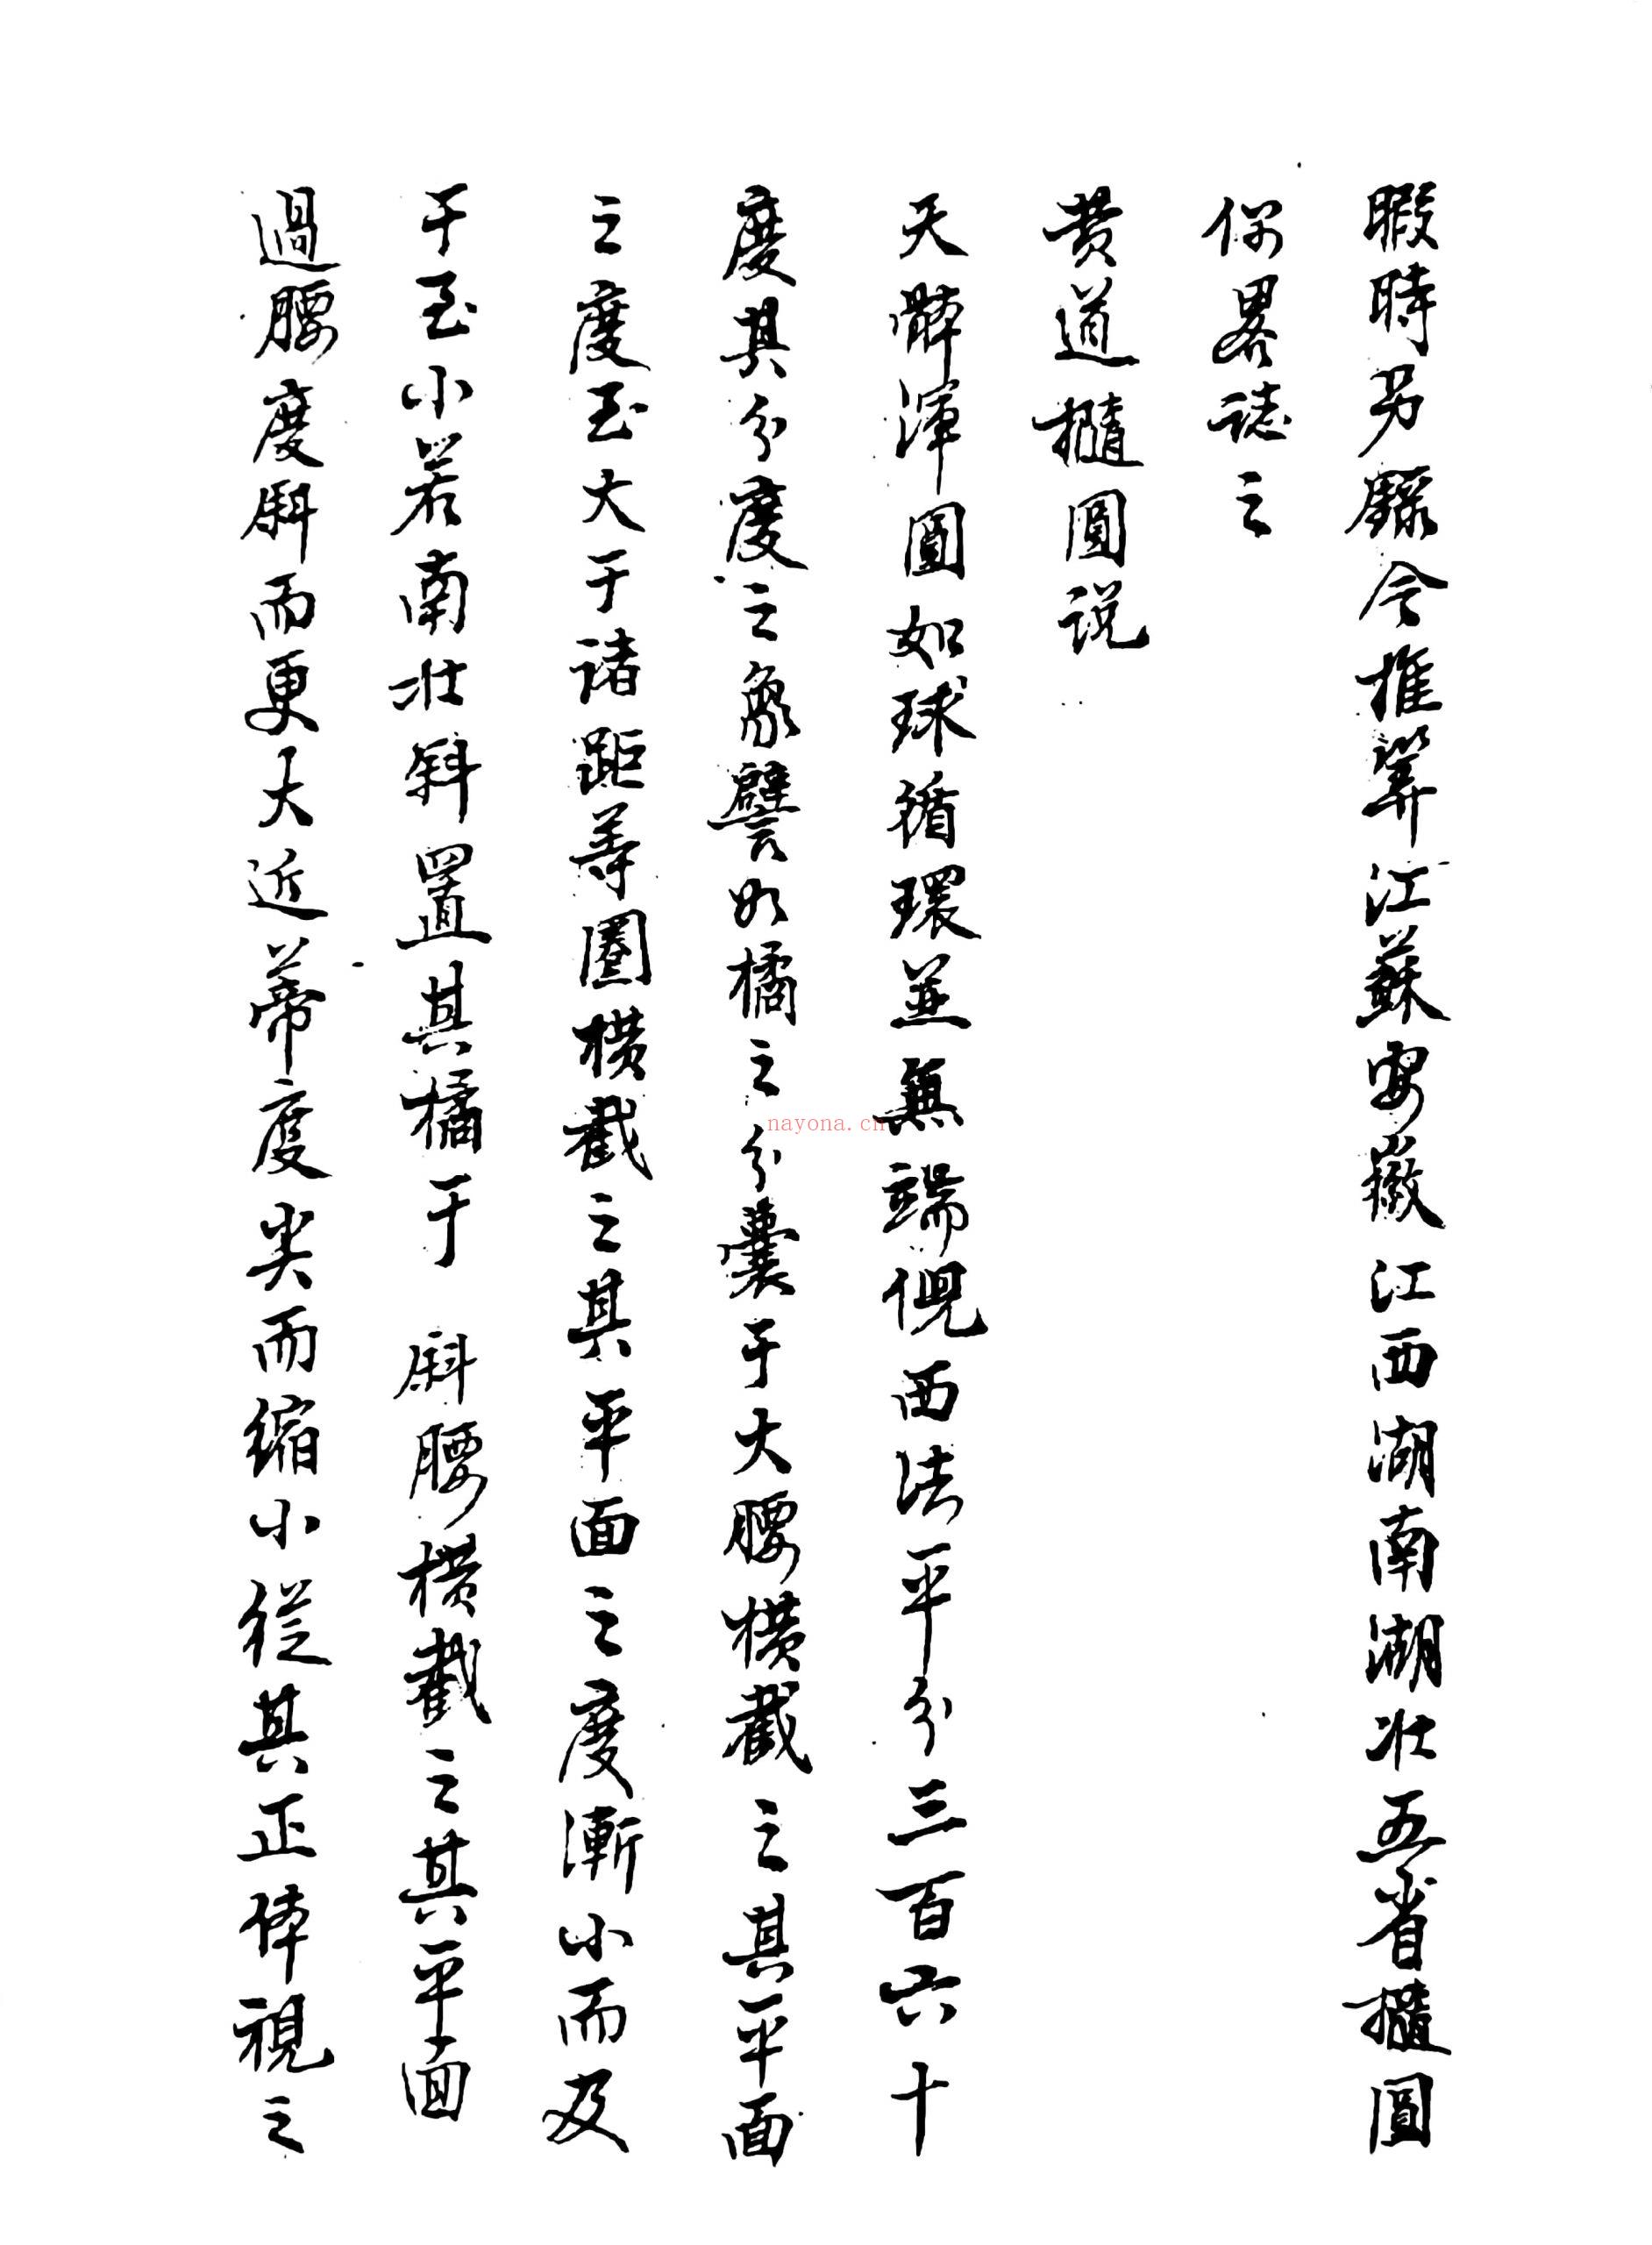 暇時另繇今推算江蘇安徽江西湖南湖北五省橢圓
併畧誌之
黄道橢圓說
天體渾圓如球循環並無端倪西法平分三百六十
度其分度之象譬如橘之分囊于大腰橫截之其平面
之度至大于諸距等圈橫截之其平面之度漸小而及
于至小若南北斜置其橘于 斜腰橫截之其平面
過腰度斜而更大近蒂度尖而縮小從其正体視之
nayona.cn